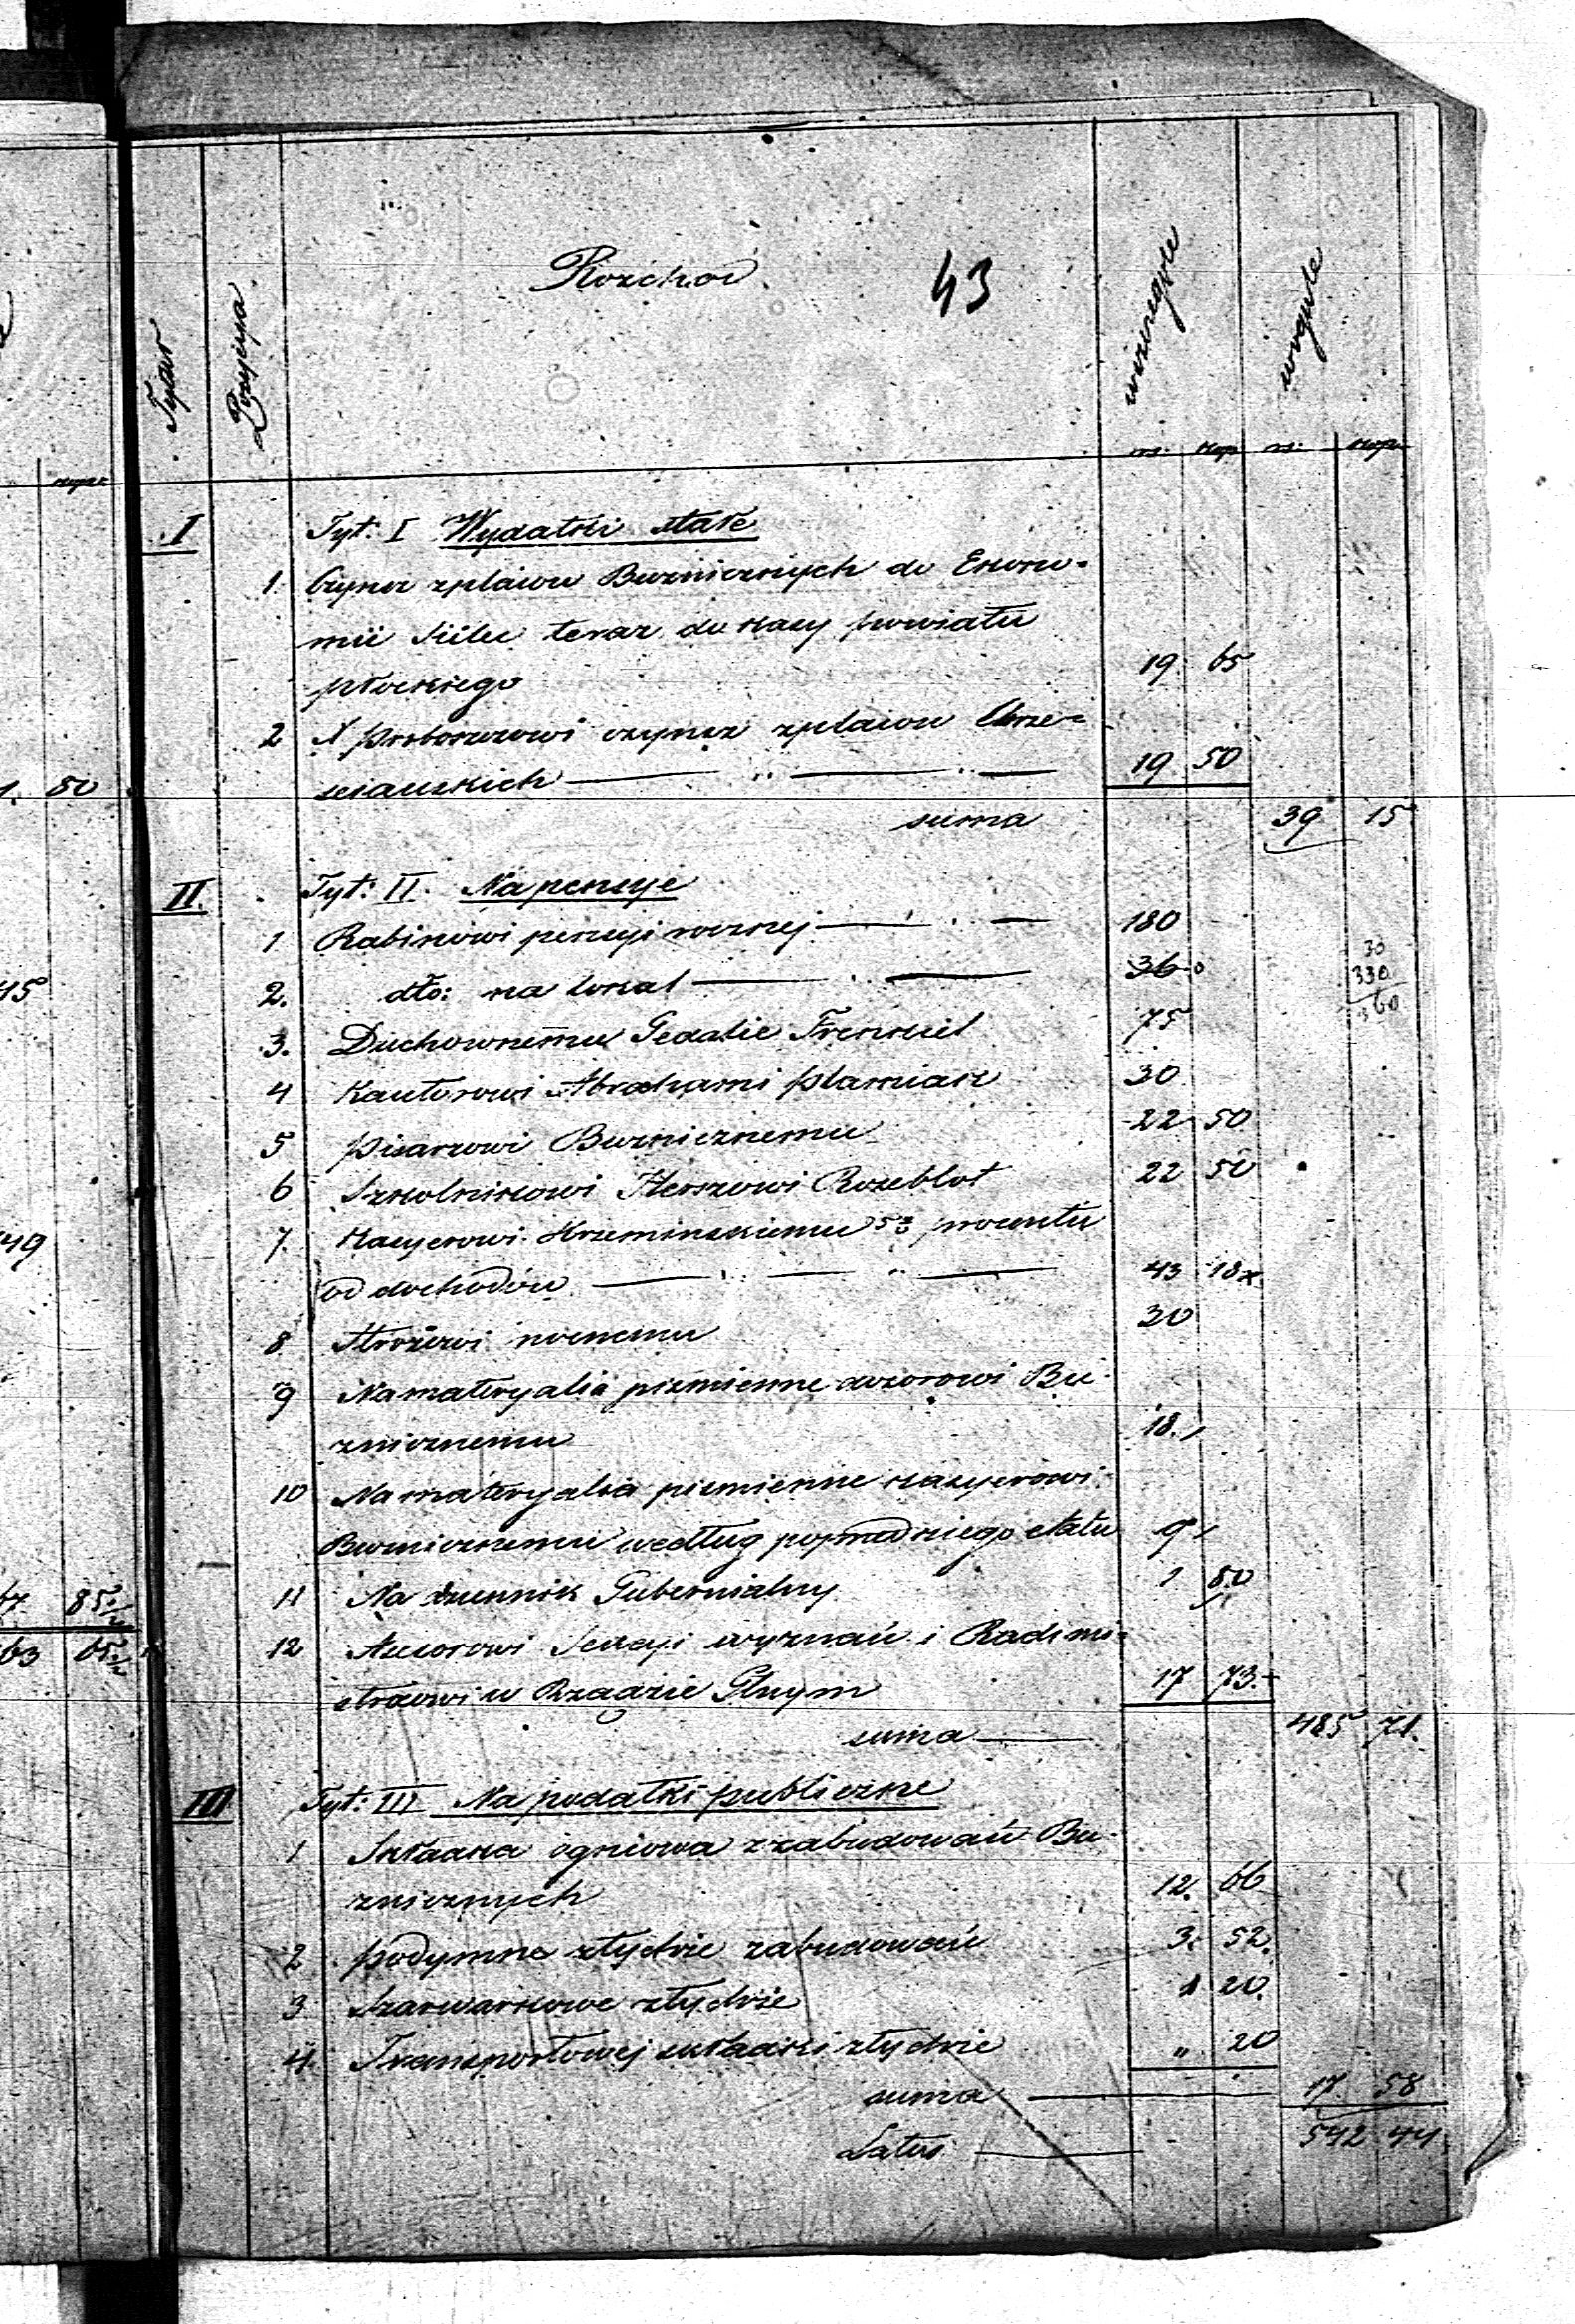 Rozchod 43
Tytuł Pozycya wszczególe wogule
rs: kop rs: kop
I Tyt: I Wydatki stałe
1. Czynsz zplaców Buzniczych do Ekono=
mii Sielec teraz do kasy powiatu
płockiego 19 65
2 X Proboszczowi czynsz zplaców Chrze=
sciańskich 19 50
suma 39 15
II. Tyt: II. Na pensye
1 Rabinowi pensyi rocznej 180
2. dto: na lokal 36
30
330
60
3. Duchownemu Gedalie Frenkiel 75
4 Kantorowi Abrahami 30
5 Pisarzowi Buznicznemu 22 50
6 Szkolnikowi Herszowi Rozeblot 22 50
7. Kasyerowi Krzeminskiemu procentu
od dochodów 43 18
8 Strożowi nocnemu 30
9 Na materyalia pizmienne dozorowi Bu-
znicznemu 18.
10 Na materyalia pizmienne kasyerowi
Buznicznemu według poprzedniego etatu 9
11 Na dziennik Gubernialny 1 80
12 Assesorowi Sekcyi wyznań i Rachmi=
strzowi w Rządzie Glnym 17 73
suma 485 71.
III Tyt: III Na podatki publiczne
1 Składka ogniowa zzabudowań Bu-
znicznych 12. 66
2 Podymne ztychże zabudowań 3. 52.
3 Szarwarkowe ztychże 1 20.
4. Transportowej składki ztychże " 20
suma 17 58
Latus 542 44
1. 80
45
49
85 1/2
63 65 1/2